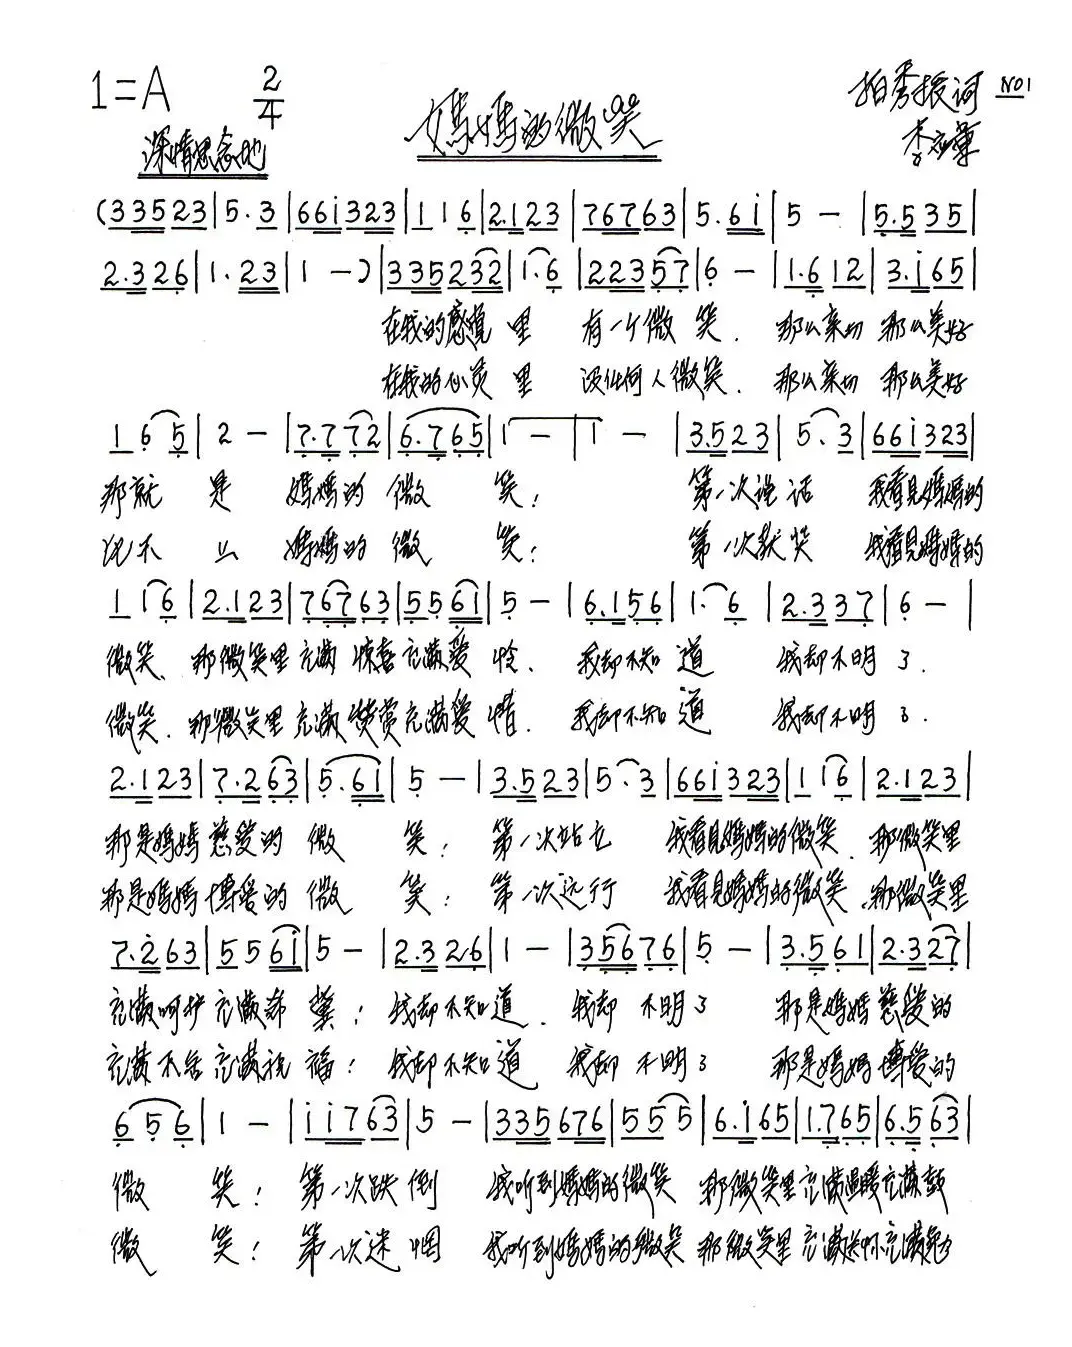 1=A 2/4 媽媽的微笑 词 NO1
深情思念地
(33523|5.3|66i323|116|2.123|76763|5.6i|5-|5.535|
2.326|1.23|1-)|335232|1.6|22357|6-|1.612|3.i65|
在我的感觉里 有一个微笑. 那么亲切 那么美好
在我的心灵里 没任何人微笑. 那么亲切 那么美好
165|2-|7.772|6.765|1-|1-|3.523|5.3|66i323|
那就是 媽媽的微笑: 第一次说话 我看見媽媽的
比不上 媽媽的微笑: 第一次获奖 我看見媽媽的
116|2.123|76763|556i|5-|6.156|1.6|2.337|6-|
微笑. 那微笑里充满惊喜充满爱怜. 我却不知道 我却不明了.
微笑. 那微笑里充满赞赏充满爱惜. 我却不知道 我却不明了.
2.123|7.263|5.6i|5-|3.523|5.3|66i323|116|2.123|
那是媽媽慈爱的微笑: 第一次站立 我看見媽媽的微笑. 那微笑里
那是媽媽博爱的微笑: 第一次远行 我看見媽媽的微笑. 那微笑里
7.263|556i|5-|2.326|1-|35676|5-|3.561|2.327|
充满呵护充满希冀: 我却不知道. 我却不明了 那是媽媽慈爱的
充满不舍充满祝福: 我却不知道 我却不明了 那是媽媽博爱的
656|1-|ii763|5-|335676|5555|6.i65|1.765|6.563|
微笑: 第一次跌倒 我听到媽媽的微笑 那微笑里充满温暖充满鼓
微笑: 第一次迷惘 我听到媽媽的微笑 那微笑里充满关怀充满